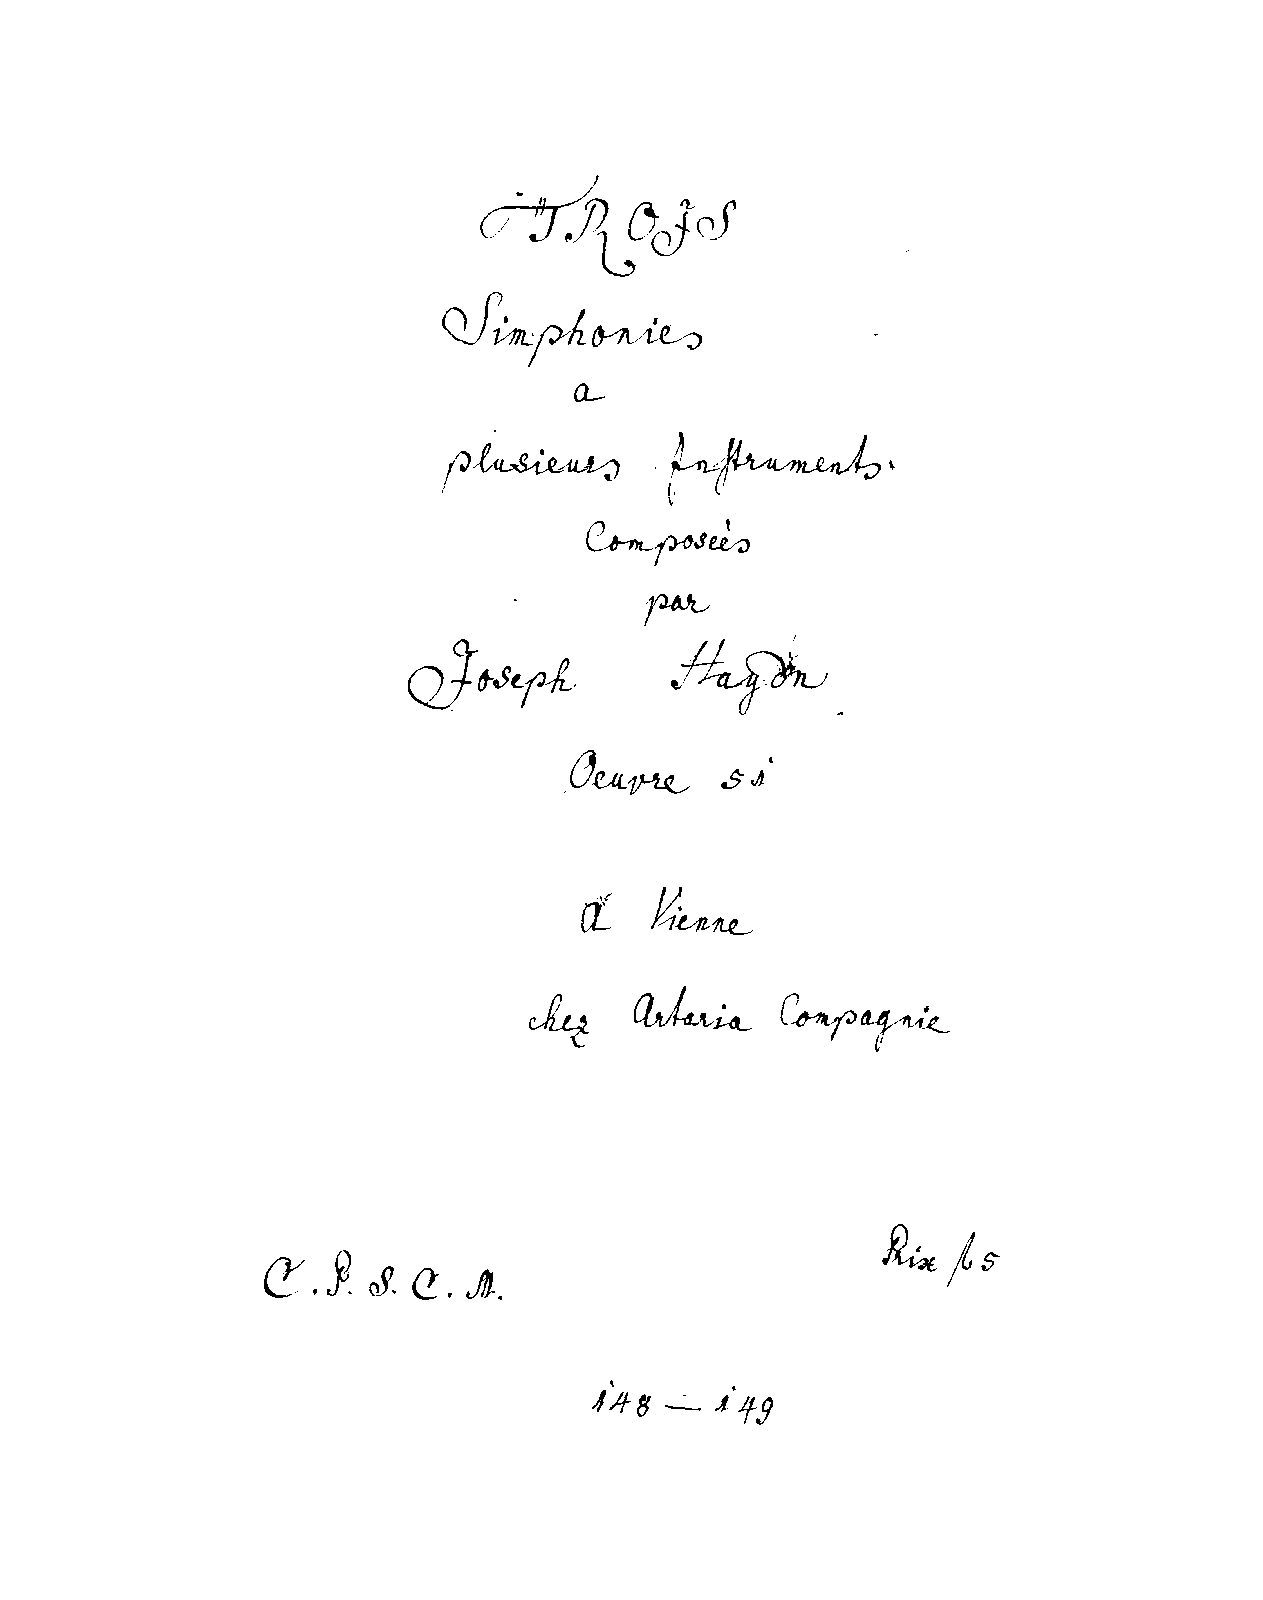 TROJS
Simphonies
a
plusieurs Instruments.
Composeès
par
Joseph Haydn
Oeuvre 51
a Vienne
chez Artaria Compagnie
Prix f 5
C. P. S. C. M.
148 — 149